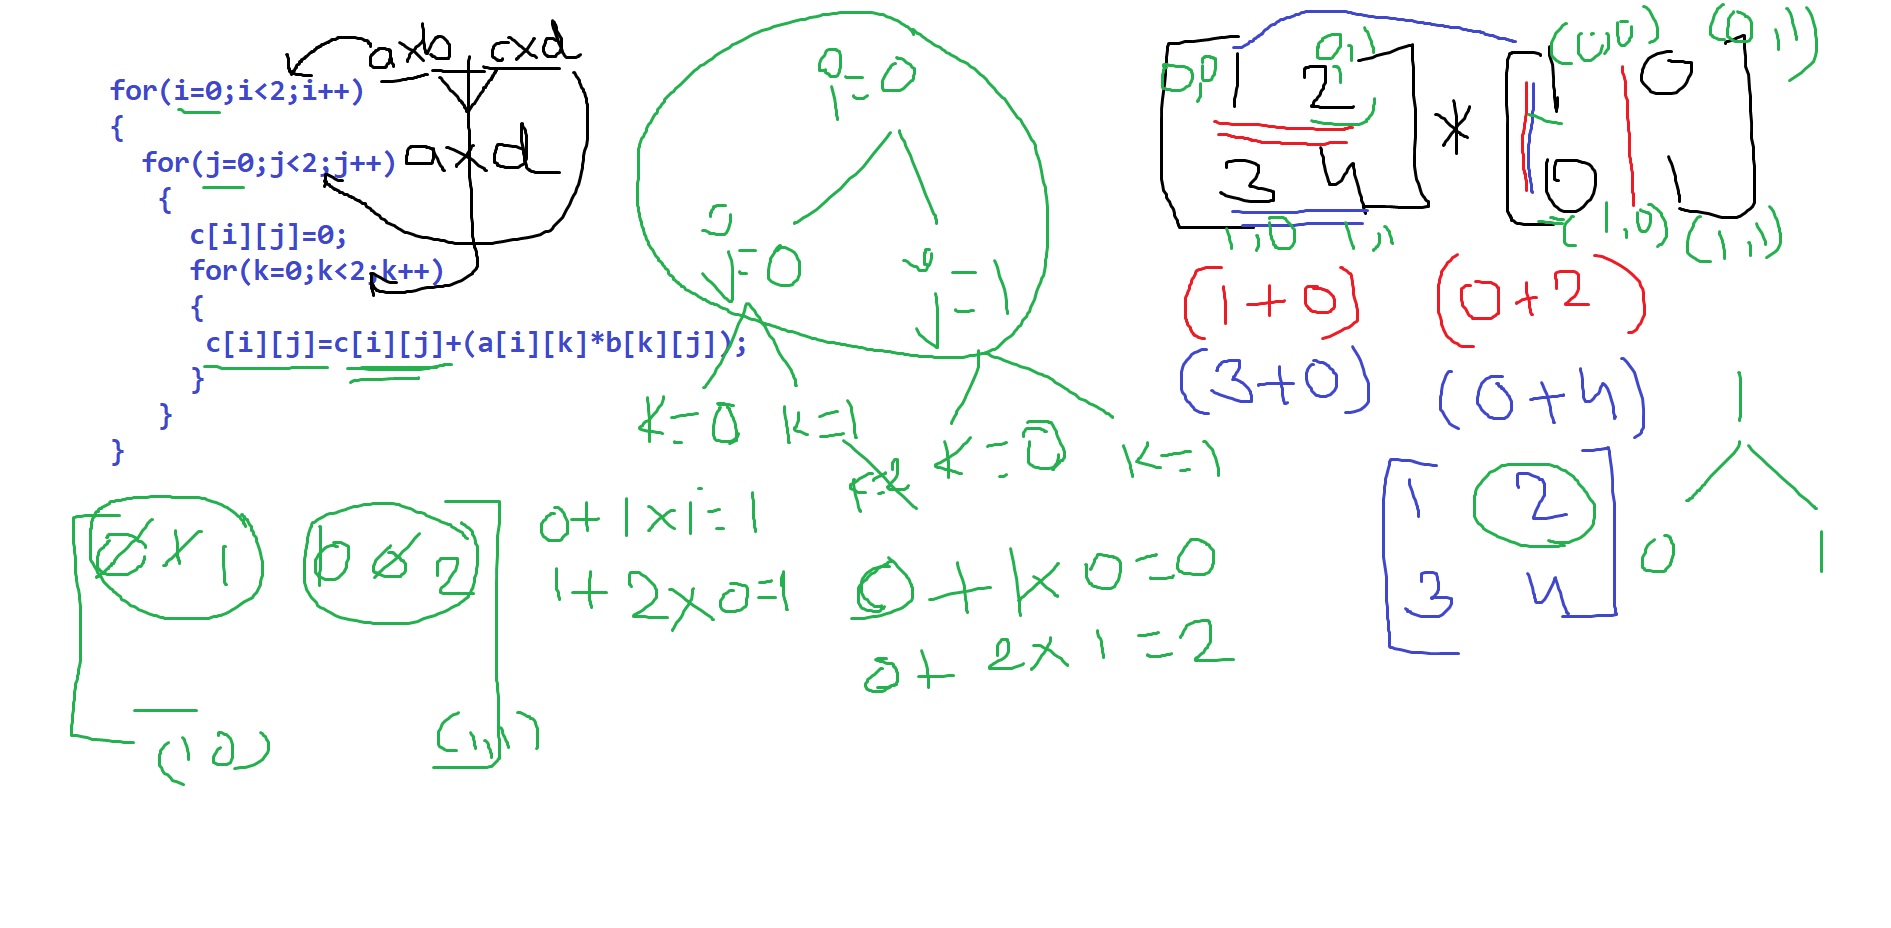 a×b c×d
for(i=0;i<2;i++)
{
for(j=0;j<2;j++)
a×d
{
c[i][j]=0;
for(k=0;k<2;k++)
{
c[i][j]=c[i][j]+(a[i][k]*b[k][j]);
}
}
}
i=0
j=0
j=1
K=0 K=1 K=2 K=0 K=1
0,0 0,1
1 2
3 4
1,0 1,1
*
(0,0) (0,1)
1 0
0 1
(1,0) (1,1)
(1+0) (0+2)
(3+0) (0+4)
1 2
3 4
1
0 1
0 × 1 0 2
(1 0) (1,1)
0+1×1=1
1+2×0=1
0+1×0=0
0+2×1=2